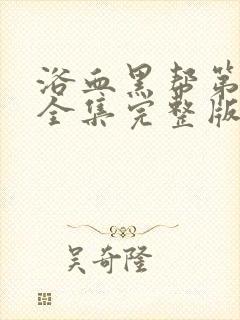 浴血黑帮第
全集完整版
吴奇隆